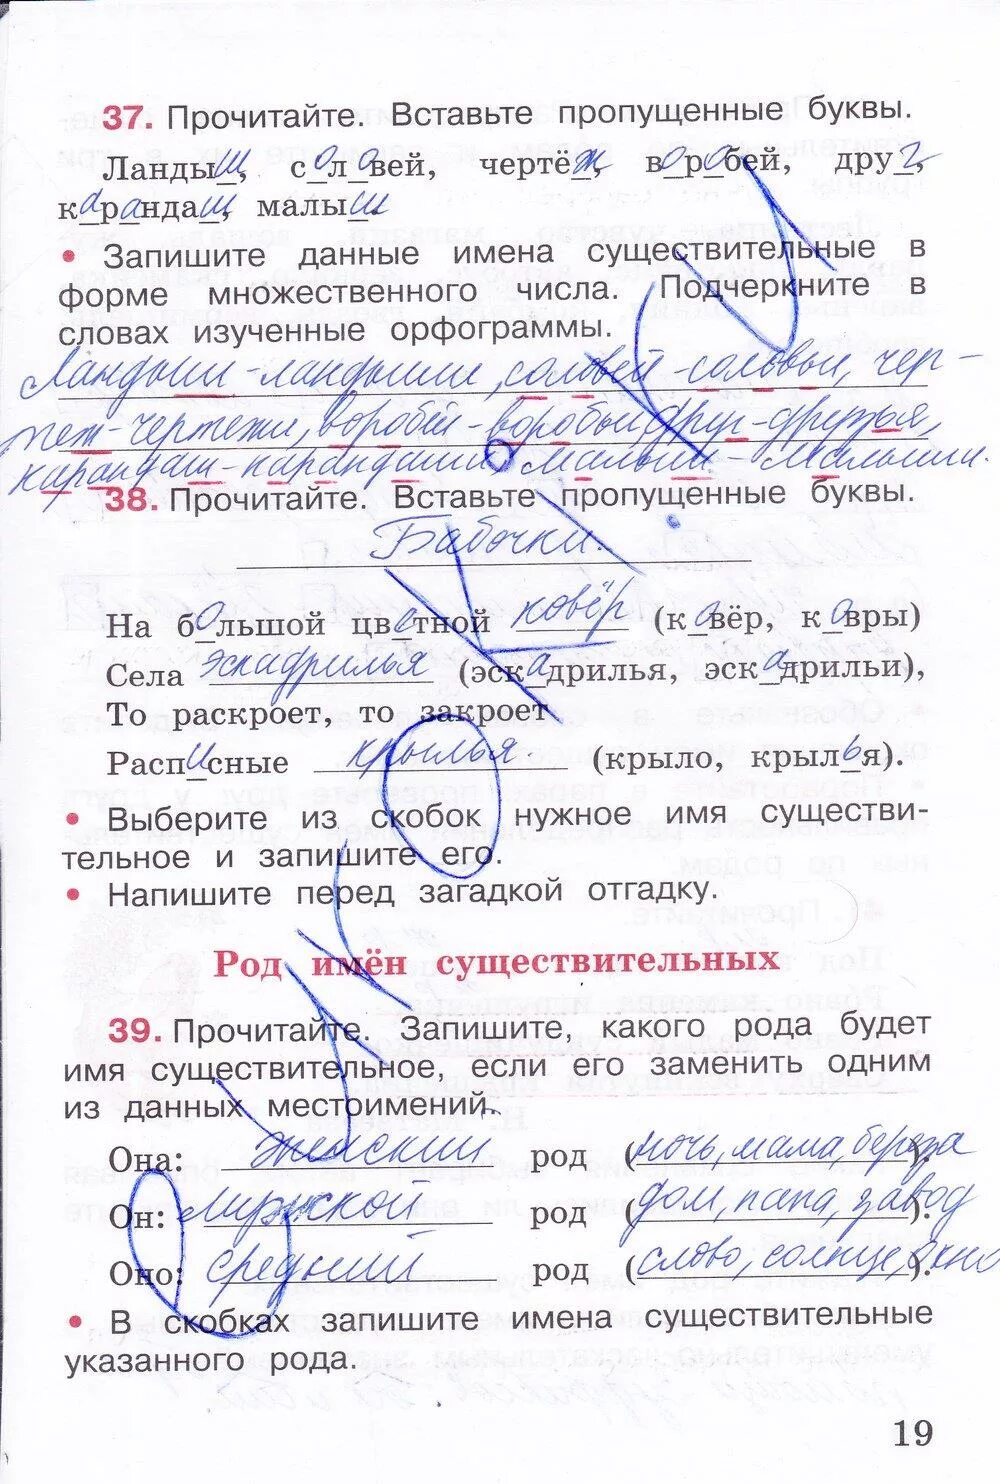 37. Прочитайте. Вставьте пропущенные буквы.
Ландыш, соловей, чертёж, воробей, друг,
карандаш, малыш.
• Запишите данные имена существительные в
форме множественного числа. Подчеркните в
словах изученные орфограммы.
Ландыш-ландыши, соловей-соловьи, чер-
теж-чертежи, воробей-воробьи, друг-друзья,
карандаш-карандаши, малыш-малыши.
38. Прочитайте. Вставьте пропущенные буквы.
Бабочки.
На большой цветной ковёр (ковёр, ковры)
Села эскадрилья (эскадрилья, эскадрильи),
То раскроет, то закроет
Расписные крылья. (крыло, крылья).
• Выберите из скобок нужное имя существи-
тельное и запишите его.
• Напишите перед загадкой отгадку.
Род имён существительных
39. Прочитайте. Запишите, какого рода будет
имя существительное, если его заменить одним
из данных местоимений.
Она: женский род (ночь, мама, береза).
Он: мужской род (дом, папа, завод).
Оно: средний род (слово, солнце, окно).
• В скобках запишите имена существительные
указанного рода.
19